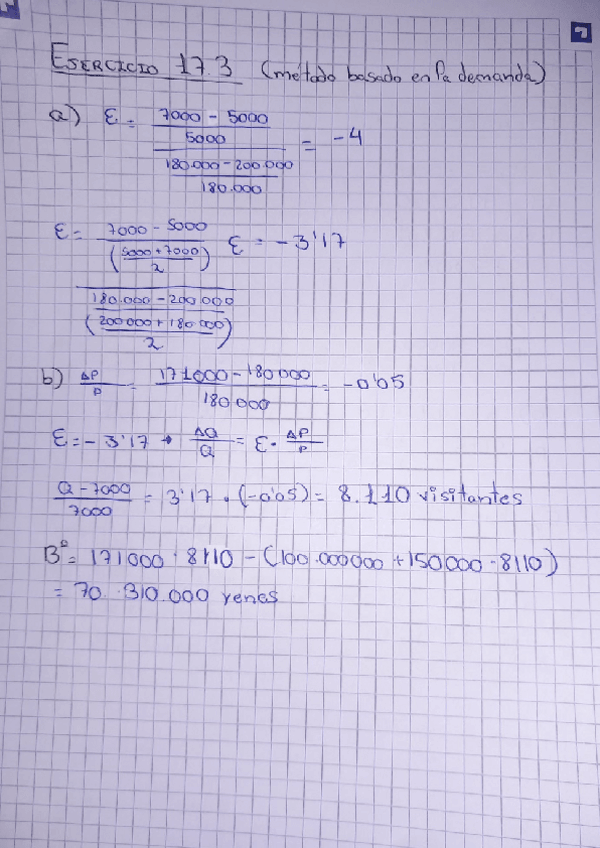 EJERCICIO 17.3 (método basado en la demanda)
a) ε = 7000 - 5000 / 5000 / 180.000 - 200.000 / 180.000 = -4
ε = 7000 - 5000 / (5000 + 7000 / 2) / 180.000 - 200.000 / (200000 + 180.000 / 2) ε = -3'17
b) ΔP / P = 171000 - 180000 / 180.000 = -0'05
ε = -3'17 → ΔQ / Q = ε · ΔP / P
Q - 7000 / 7000 = 3'17 · (-0'05) = 8.110 visitantes
Bº = 171000 · 8110 - (100.000000 + 150.000 · 8110)
= 70.310.000 yenes